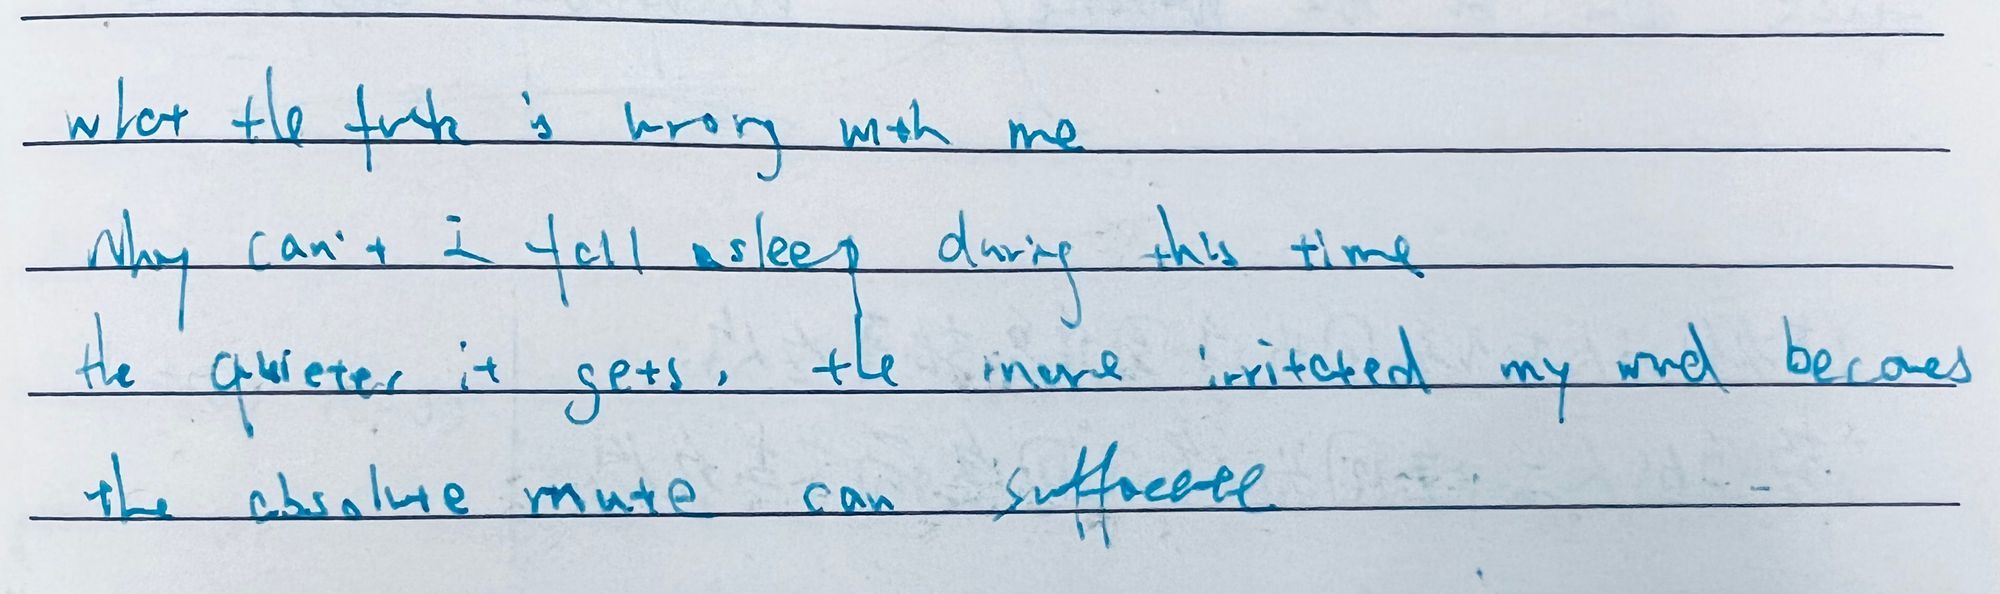 what the fuck is wrong with me
Why can't I fall asleep during this time
the quieter it gets, the more irritated my mind becomes
the absolute mute can suffocate